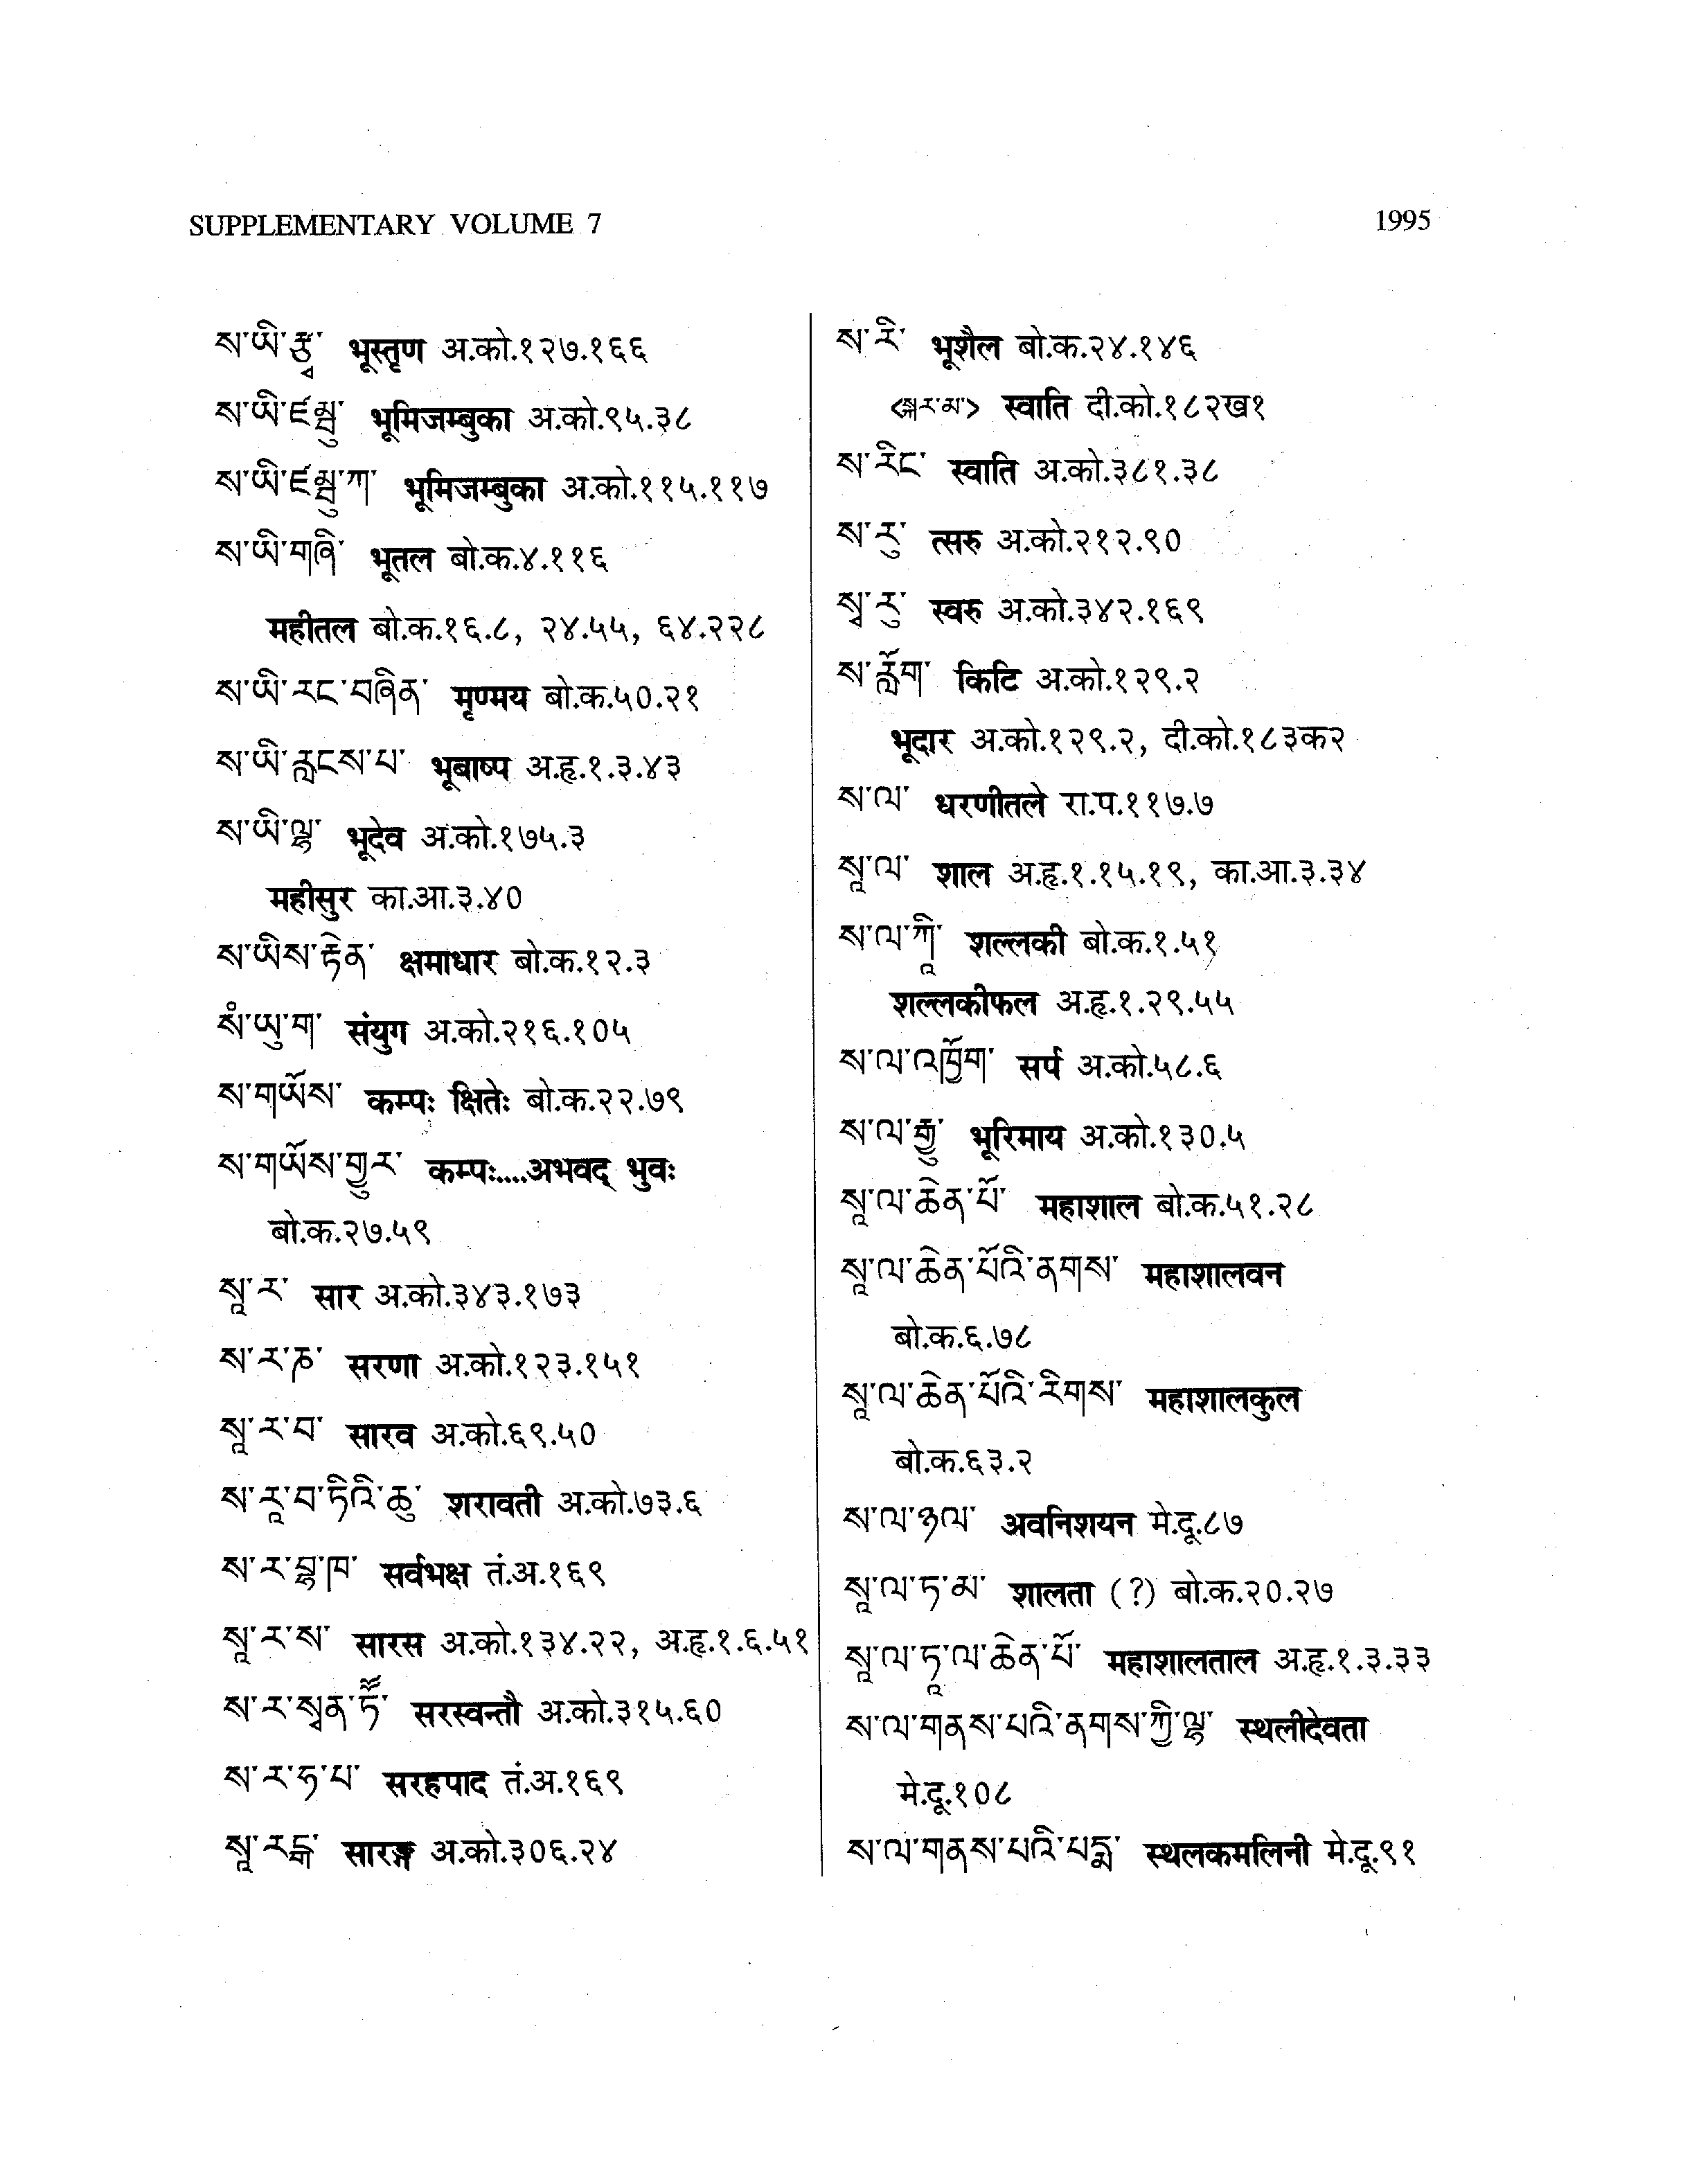 SUPPLEMENTARY VOLUME 7
1995
ས་ཡི་རྩྭ་ भूस्तृण अ.को.१२७.१६६
ས་ཡི་ཛམྦུ་ भूमिजम्बुका अ.को.९५.३८
ས་ཡི་ཛམྦུ་ཀ་ भूमिजम्बुका अ.को.११५.११७
ས་ཡི་གཞི་ भूतल बो.क.४.११६
महीतल बो.क.१६.८, २४.५५, ६४.२२८
ས་ཡི་རང་བཞིན་ मृण्मय बो.क.५०.२१
ས་ཡི་རླངས་པ་ भूबाष्प अ.हृ.१.३.४३
ས་ཡི་ལྷ་ भूदेव अ.को.१७५.३
महीसुर का.आ.३.४०
ས་ཡིས་རྟེན་ क्षमाधार बो.क.१२.३
སཾ་ཡུ་ག་ संयुग अ.को.२१६.१०५
ས་གཡོས་ कम्पः क्षितेः बो.क.२२.७९
ས་གཡོས་གྱུར་ कम्पः....अभवद् भुवः
बो.क.२७.५९
སཱ་ར་ सार अ.को.३४३.१७३
ས་ར་ཎ་ सरणा अ.को.१२३.१५१
སཱ་ར་བ་ सारव अ.को.६९.५०
ས་རཱ་བ་ཏིའི་ཆུ་ शरावती अ.को.७३.६
ས་ར་བྷ་ཁ་ सर्वभक्ष तं.अ.१६९
སཱ་ར་ས་ सारस अ.को.१३४.२२, अ.हृ.१.६.५१
ས་ར་སྭན་ཏཽ་ सरस्वन्तौ अ.को.३१५.६०
ས་ར་ཧ་པ་ सरहपाद तं.अ.१६९
སཱ་རངྒ་ सारङ्ग अ.को.३०६.२४
ས་རི་ भूशैल बो.क.२४.१४६
<སྐར་མ་> स्वाति दी.को.१८२ख१
ས་རིང་ स्वाति अ.को.३८१.३८
ས་རུ་ त्सरु अ.को.२१२.९०
སྭ་རུ་ स्वरु अ.को.३४२.१६९
ས་རློག་ किटि अ.को.१२९.२
भूदार अ.को.१२९.२, दी.को.१८३क२
ས་ལ་ धरणीतले रा.प.११७.७
སཱ་ལ་ शाल अ.हृ.१.१५.१९, का.आ.३.३४
ས་ལ་ཀཱི་ शल्लकी बो.क.१.५१
शल्लकीफल अ.हृ.१.२९.५५
ས་ལ་འཁྱོག་ सर्प अ.को.५८.६
ས་ལ་རྒྱུ་ भूरिमाय अ.को.१३०.५
སཱ་ལ་ཆེན་པོ་ महाशाल बो.क.५१.२८
སཱ་ལ་ཆེན་པོའི་ནགས་ महाशालवन
बो.क.६.७८
སཱ་ལ་ཆེན་པོའི་རིགས་ महाशालकुल
बो.क.६३.२
ས་ལ་ཉལ་ अवनिशयन मे.दू.८७
སཱ་ལ་ཏ་མ་ शालता (?) बो.क.२०.२७
སཱ་ལ་ཏཱ་ལ་ཆེན་པོ་ महाशालताल अ.हृ.१.३.३३
ས་ལ་གནས་པའི་ནགས་ཀྱི་ལྷ་ स्थलीदेवता
मे.दू.१०८
ས་ལ་གནས་པའི་པདྨ་ स्थलकमलिनी मे.दू.९१